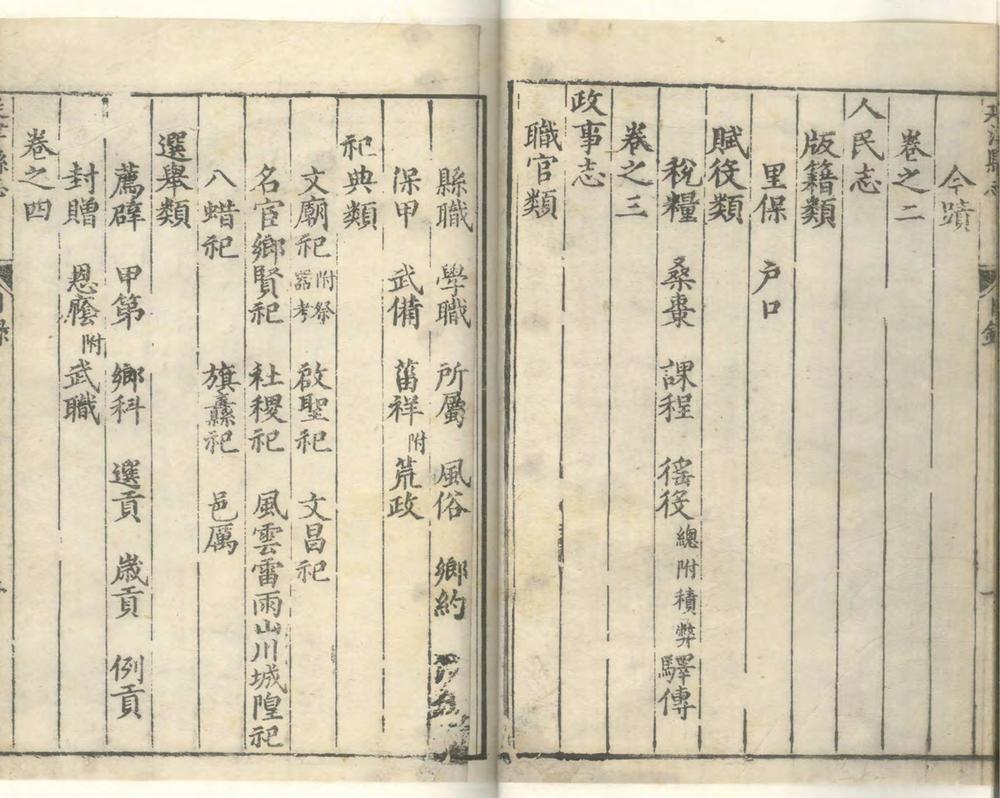 今蹟
卷之二
人民志
版籍類
里保 户口
賦役類
稅糧 桑棗 課程 徭役 總附積弊 驛傳
卷之三
政事志
職官類
縣職 學職 所屬 風俗 鄉約
保甲 武備 菑祥 附 荒政
祀典類
文廟祀 附祭器考 啟聖祀 文昌祀
名宦鄉賢祀 社稷祀 風雲雷雨山川城隍祀
八蜡祀 旗纛祀 邑厲
選舉類
薦辟 甲第 鄉科 選貢 歲貢 例貢
封贈 恩廕 附 武職
卷之四